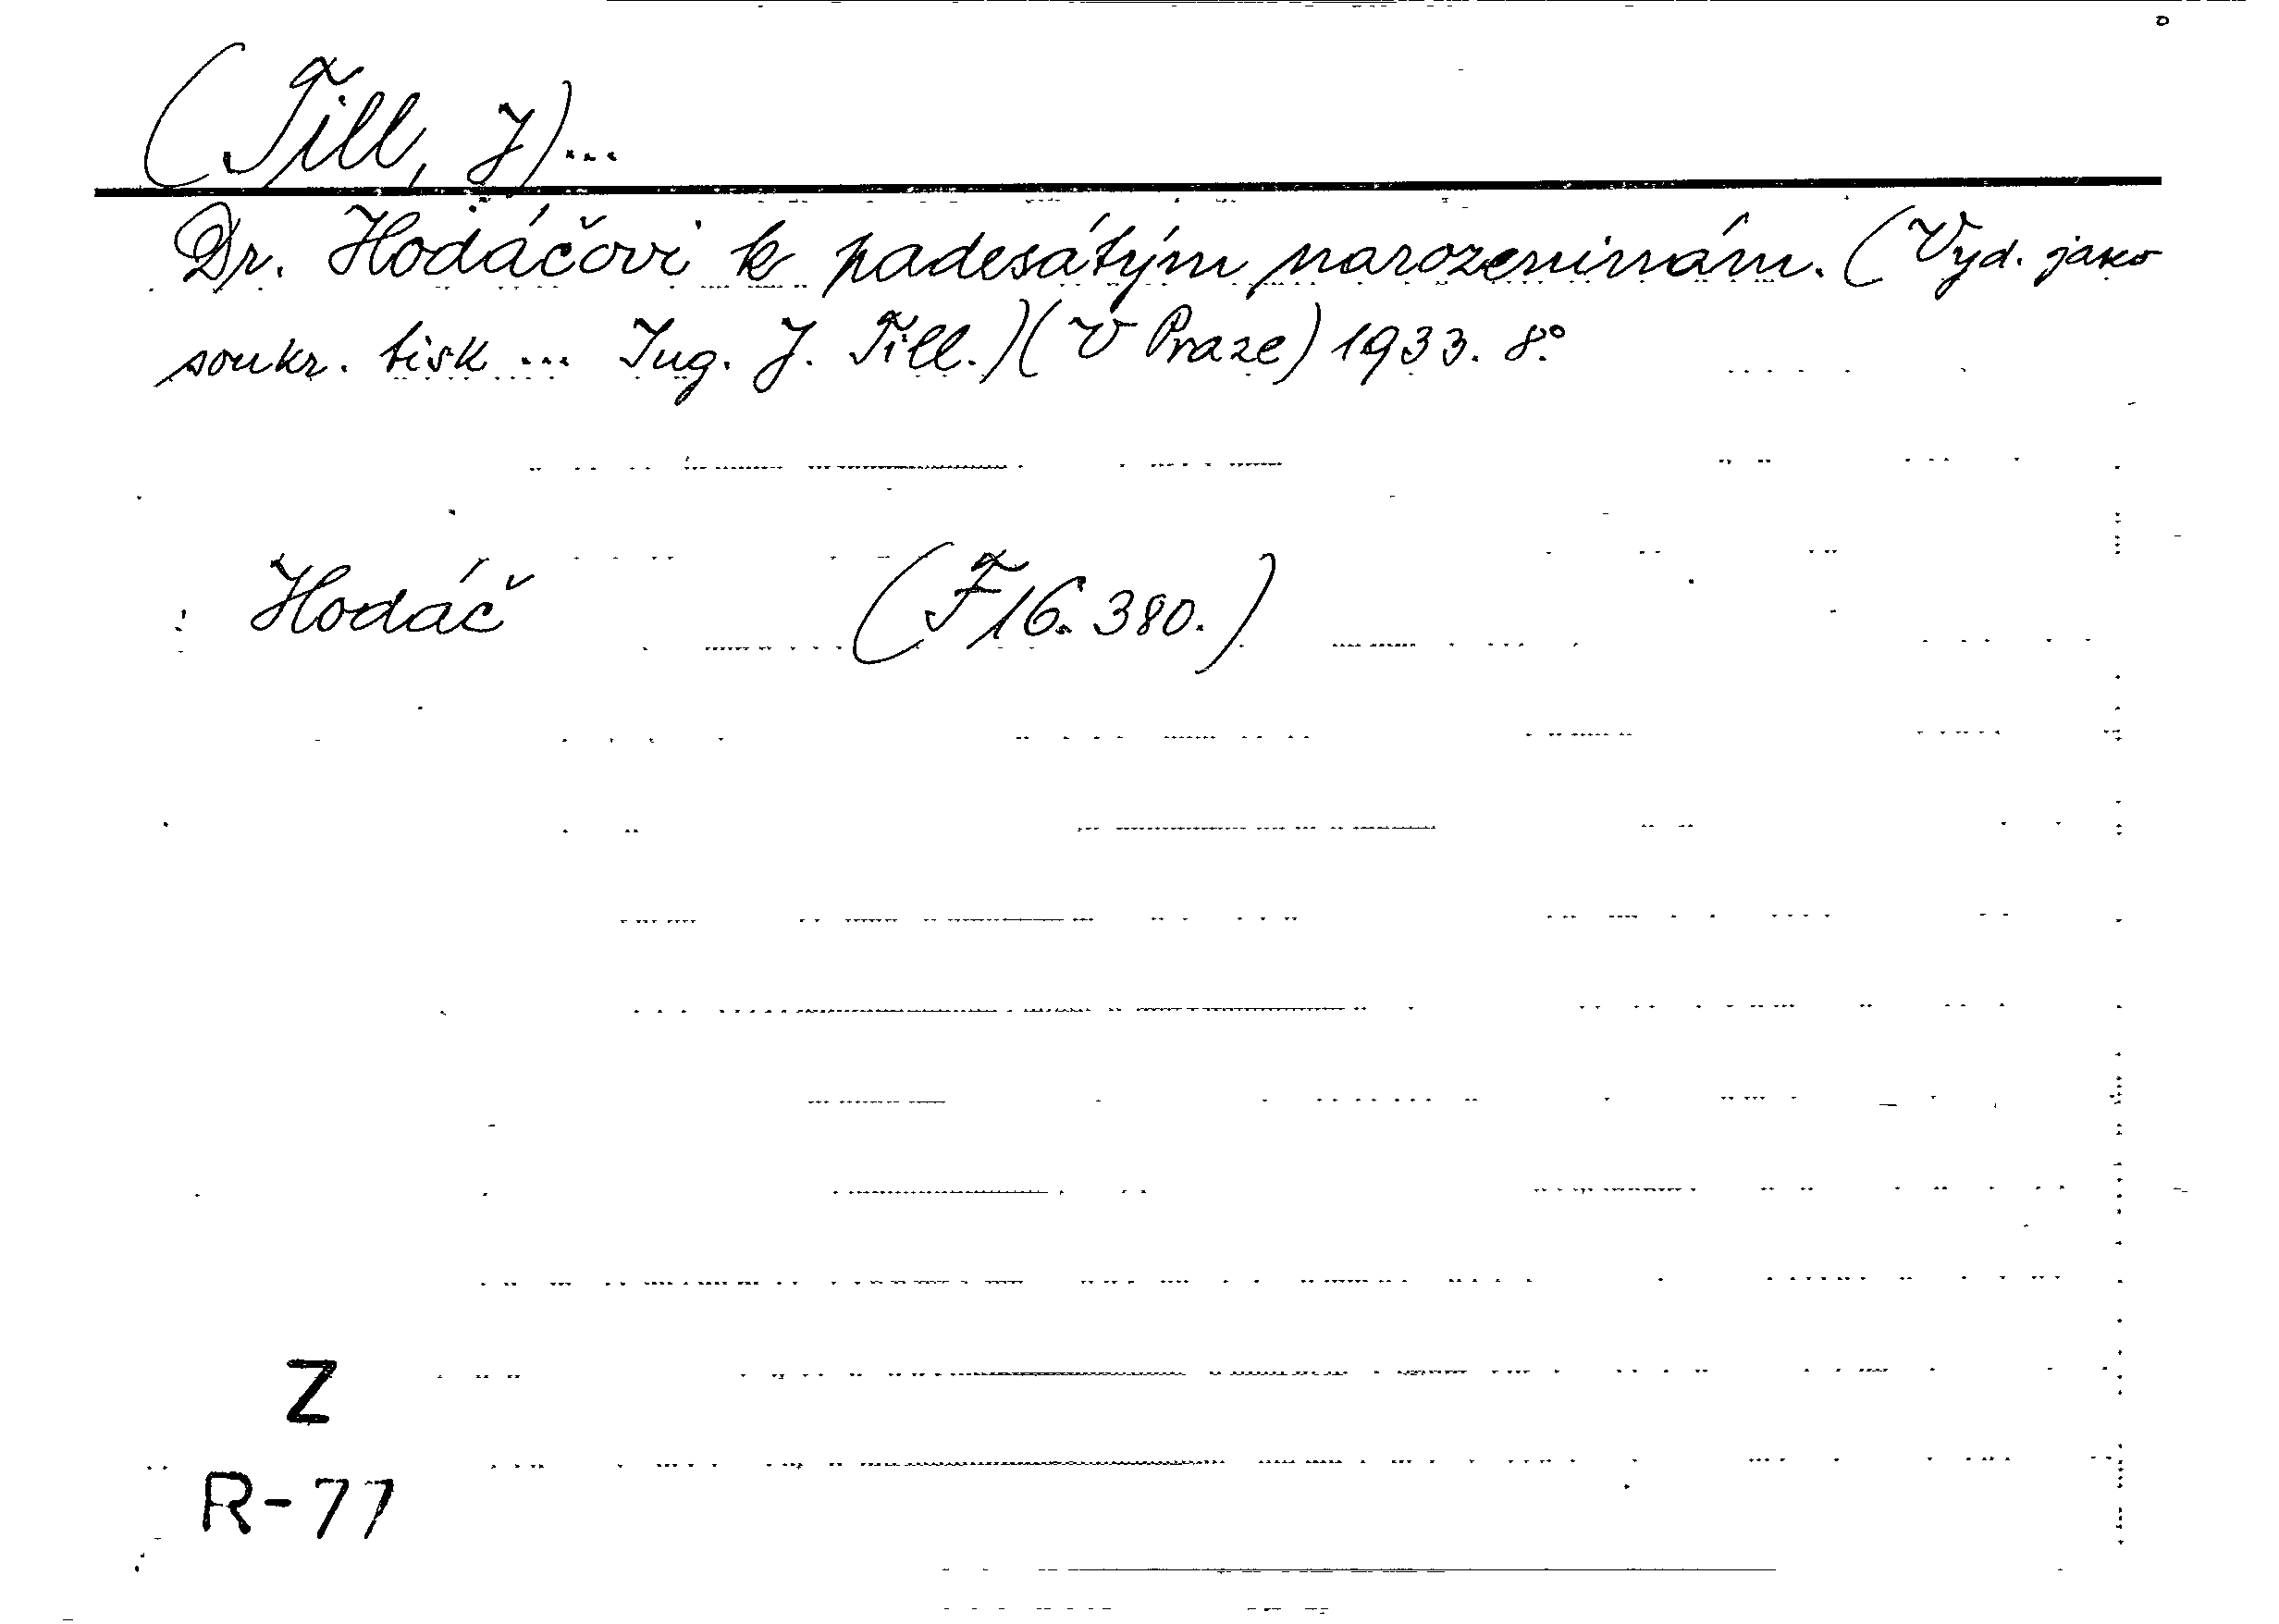 (Till, J)...
Dr. Hodáčovi k padesátým narozeninám. (Vyd. jako
soukr. tisk ... Ing. J. Till.)(V Praze) 1933. 8°.
Hodáč (F 16.380.)
Z
R-77